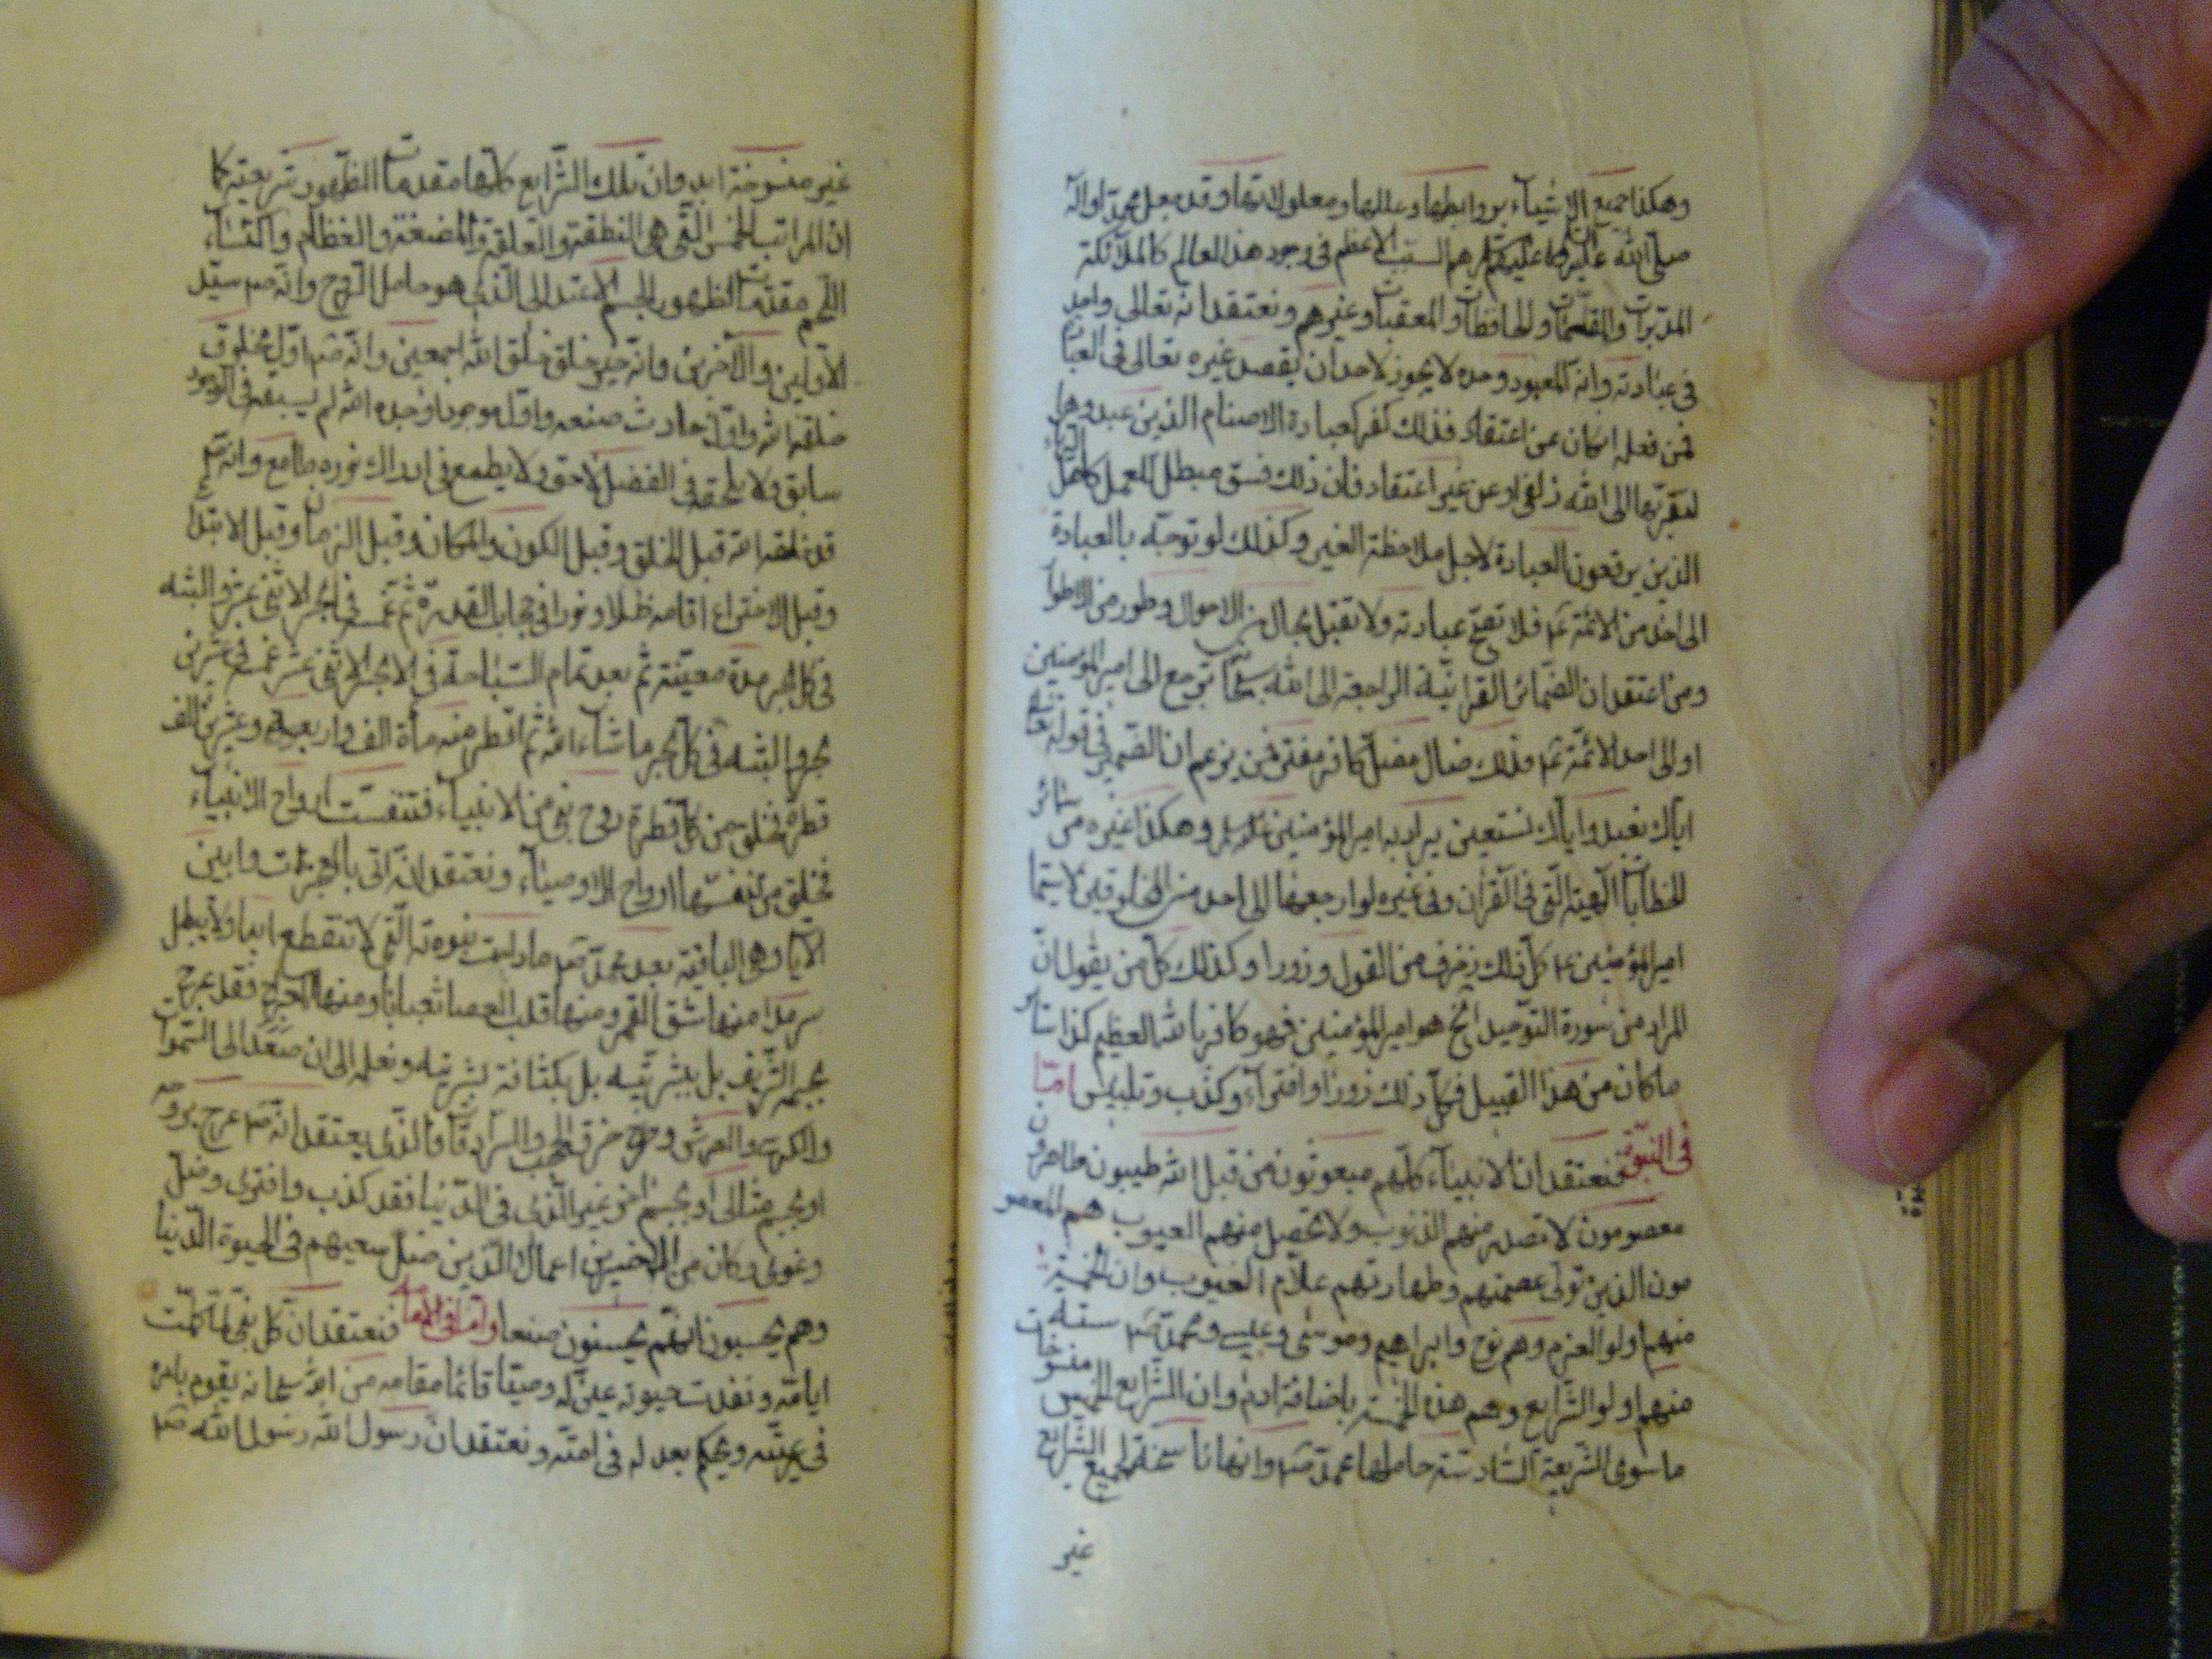 وهكذا جميع الاشيآء بروابطها وعللها ومعلولاتها وقد جعل محمدا وآله
صلى الله عليه وعليهم هم السبب الاعظم فى وجود هذا العالم كالملآئكة
المدبرات والمقسمات والحافظات والمعقبات وغيرهم ونعتقد انه تعالى واحد
فى عبادته وانه المعبود وحده لا يجوز لاحد ان يقصد غيره تعالى فى العبادة
فمن فعله ان كان عن اعتقاد فذلك كفر كعبادة الاصنام الذين عبدوها
لتقربها الى الله زلفى او عن غير اعتقاد فان ذلك فسق مبطل للعمل كاهل الريآء
الذين يوقعون العبادة لاجل ملاحظة الغير وكذلك لو توجه بالعبادة
الى احد من الائمة ع فلا تصح عبادته ولا تقبل بحال من الاحوال وطور من الاطوار
ومن اعتقد ان الضمائر القرانية الراجعة الى الله سبحانه ترجع الى امير المؤمنين
او الى احد الائمة ع فذلك ضال مضل كافر مفتر فمن يزعم ان الضمير فى قوله تعالى
اياك نعبد واياك نستعين يراد به امير المؤمنين وهكذا غيره من سائر
الخطابات الالهية التى فى القرآن وفى غيره لو ارجعها الى احد من المخلوقين لا سيما
امير المؤمنين ع كل ذلك زخرف من القول وزورا وكذلك كل من يقول ان
المراد من سورة التوحيد الخ هو امير المؤمنين فهو كافر بالله العظيم كذا سائر
ما كان من هذا القبيل فكل ذلك زورا وافترآء وكذب وتلبيس اما
فى النبوة فنعتقد ان الانبيآء كلهم مبعوثون من قبل الله طيبون طاهرون
معصومون لا تصدر منهم الذنوب ولا تحصل منهم العيوب هم المعصو
مون الذين تولى عصمتهم وطهارتهم علام الغيوب وان الخمسة
منهم اولو العزم وهم نوح وابراهيم وموسى وعيسى ومحمد ص ستة
منهم اولو الشرايع وهم هذه الخمسة باضافة ادم وان الشرايع الخمس منسوخات
ما سوى الشريعة السادسة حاملها محمد ص وانها ناسخة لجميع الشرايع
غير
غير منسوخة ابدا وان تلك الشرايع كلها مقدمات لظهور شريعته كما
ان المراتب الخمس التى هى النطفة والعلقة والمضغة والعظام واكتسآء
اللحم مقدمات لظهور الجسم الاعتدالى الذى هو حامل الروح وانه ص سيد
الاولين والآخرين وانه خير خلق خلق الله اجمعين وانه ص اول مخلوق
خلقه الله واول حادث صنعه واول موجود اوجده الله لم يسبقه فى الوجود
سابق ولا يلحقه فى الفضل لاحق ولا يطمع فى ادراك نوره طامع وانه ص
قد خلقه الله قبل الخلق وقبل الكون والمكان وقبل الزمان وقبل الابتدا
وقبل الاختراع اقامه ظلا ونورا فى حجاب القدرة ثم غمس فى ابحر الاثنى عشر والبثه
فى كل بحر مدة معينة ثم بعد تمام السباحة فى الابحر الاثنى عشر غمس فى عشرين
بحر والبثه فى كل بحر ما شآء الله ثم اقطر منه مأة الف واربعة وعشرين الف
قطرة فخلق من كل قطرة روح نبى من الانبيآء فتنفست ارواح الانبيآء
فخلق من نفسها ارواح الاوصيآء ونعتقد انه اتى بالمعجزات وابين
الآيات وهى الباقية بعد محمد ص ما دامت نبوته التى لا تنقطع ابدا ولا يبطل
سرمدا منها شق القمر ومنها قلب العصا ثعبانا ومنها المعراج فقد عرج
بجسمه الشريف بل ببشريته بل بكثافة بشريته ونعله الى ان صعد الى السموات
والكرسى والعرش وخرق الحجب والسرادقات والذى يعتقد انه ص عرج بروحه
او بجسم مثالى او بجسم آخر غير الذى فى الدنيا فقد كذب وافترى وضل
وغوى وكان من الاخسرين اعمالا الذين ضل سعيهم فى الحيوة الدنيا
وهم يحسبون انهم يحسنون صنعا واما فى الامامة فنعتقد ان كل نبى لما كملت
ايامه ونفدت حيوته عين له وصيا قائما مقامه من الله سبحانه يقوم بامره
فى رعيته ويحكم بعد له فى امته ونعتقد ان رسول الله رسول الله ص